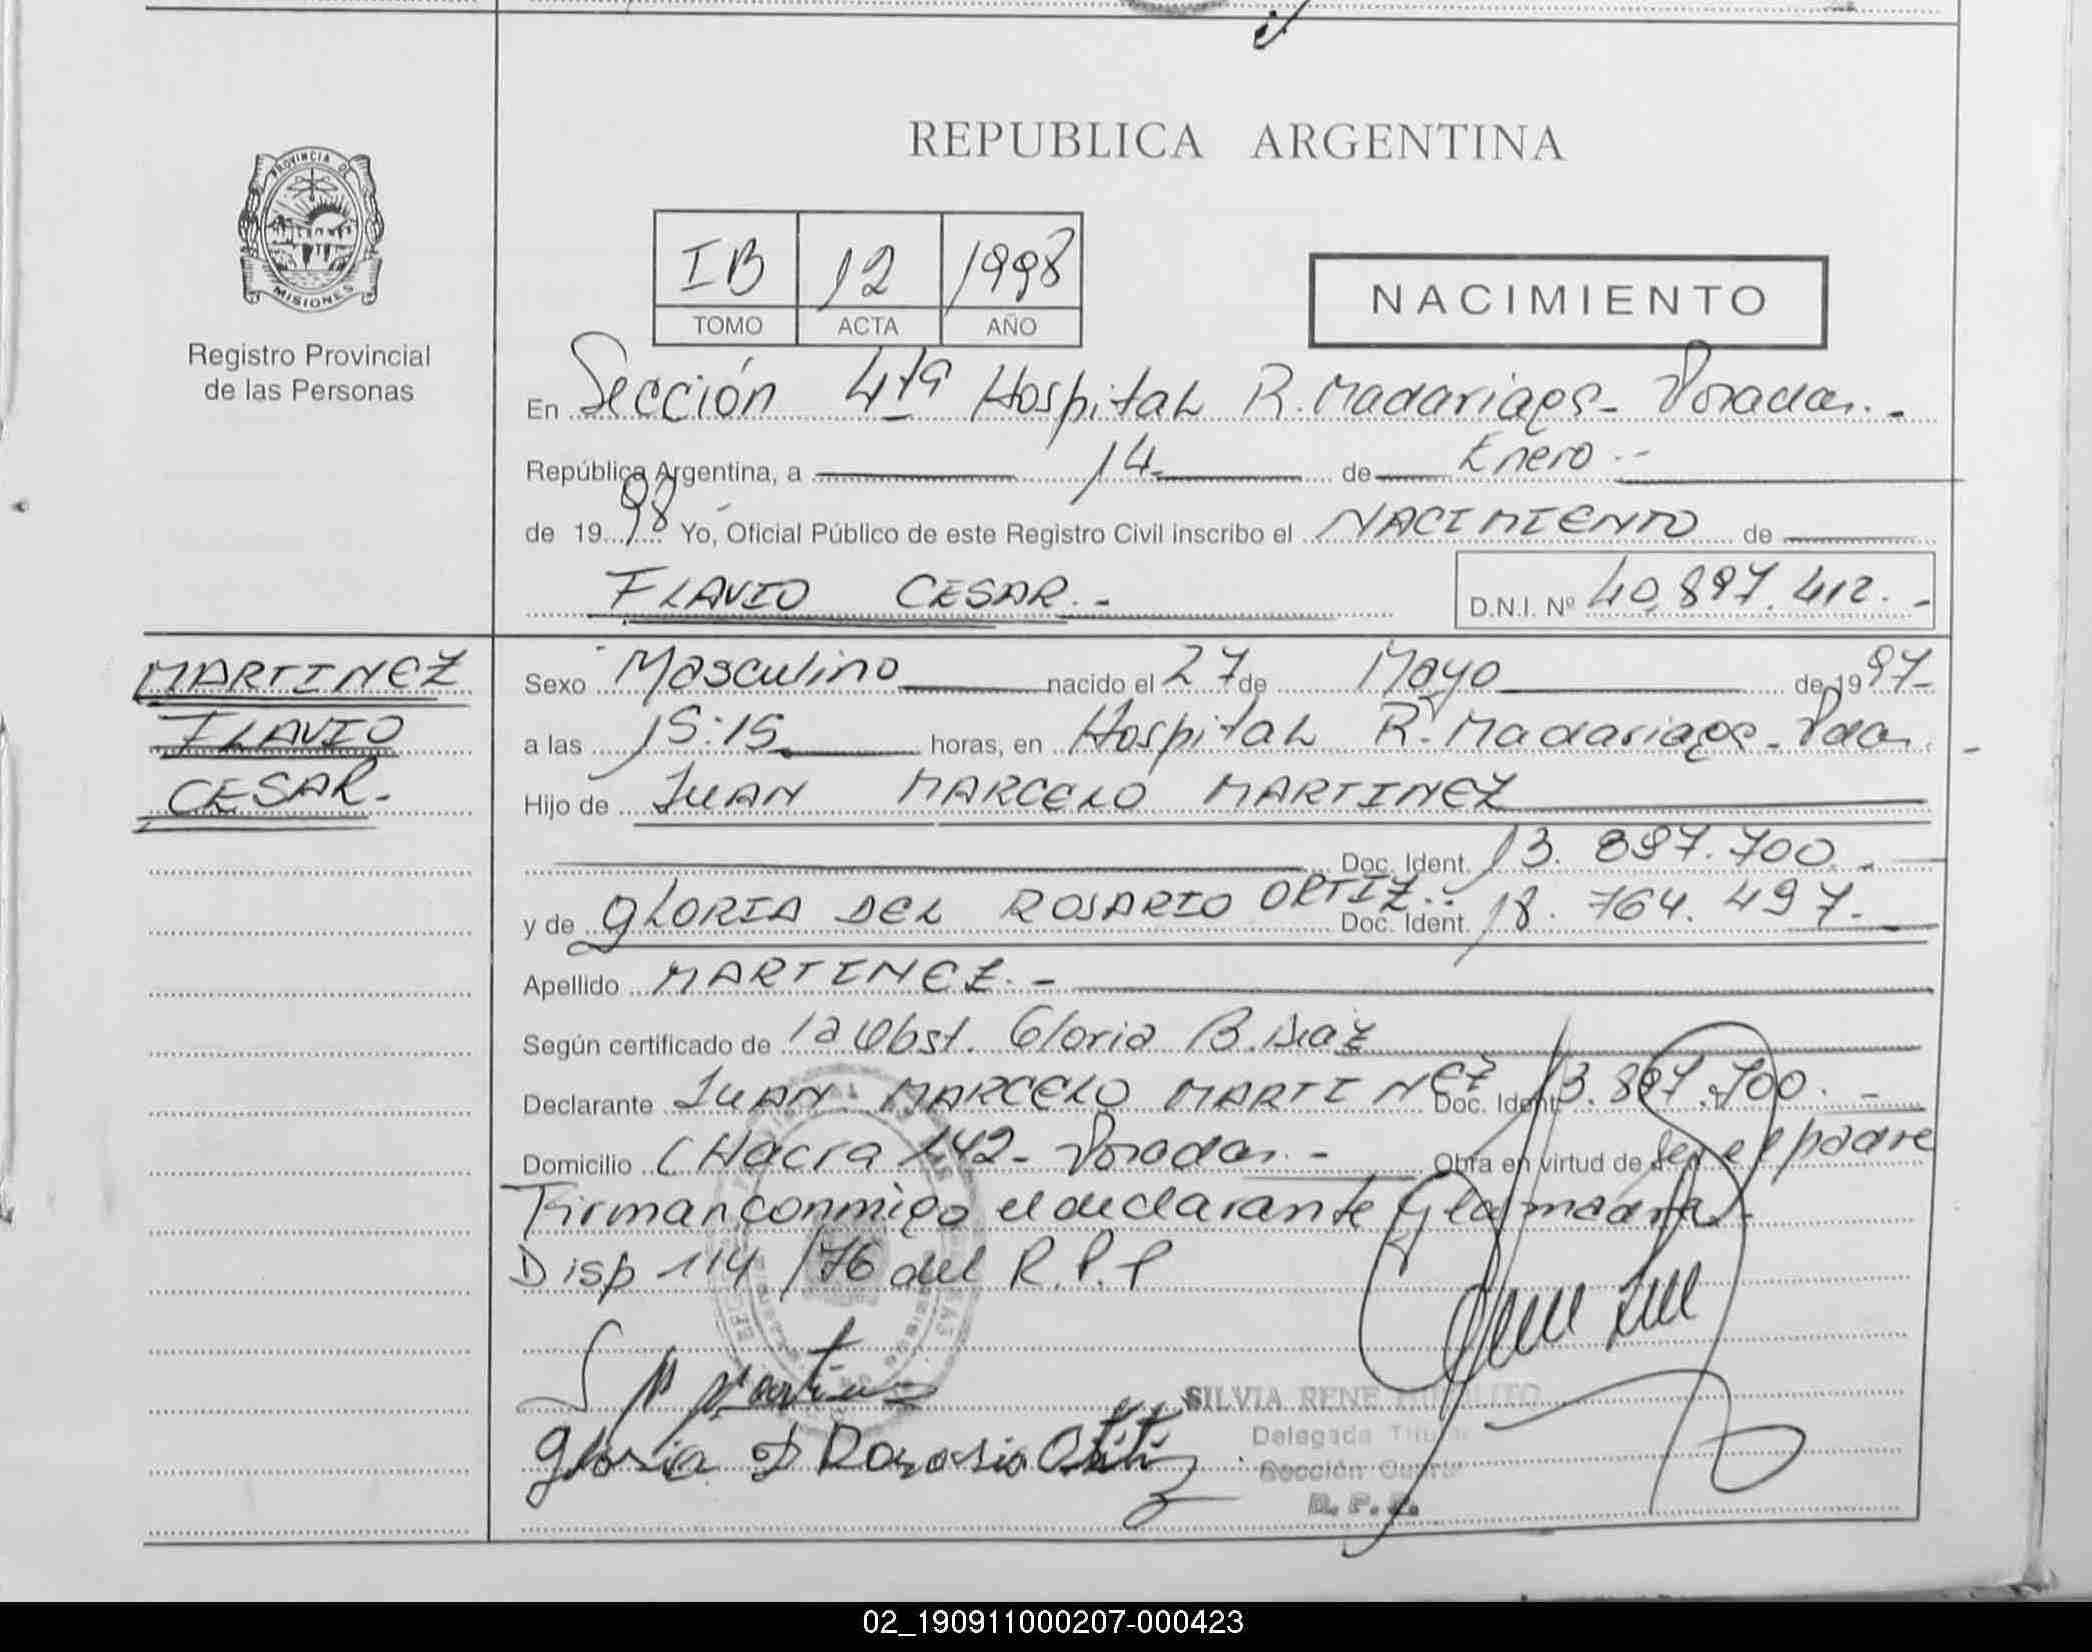 REPUBLICA ARGENTINA
PROVINCIA DE
MISIONES
Registro Provincial
de las Personas
IB 12 1998
TOMO ACTA AÑO
NACIMIENTO
En Sección 4ta Hospital R. Madariaga - Posadas. -
República Argentina, a 14 de Enero. -
de 1998 Yo, Oficial Público de este Registro Civil inscribo el NACIMIENTO de
FLAVIO CESAR. -
D.N.I. Nº 40.897.412. -
MARTINEZ
FLAVIO
CESAR. -
Sexo Masculino nacido el 27 de Mayo de 1997 -
a las 15:15 horas, en Hospital R. Madariaga - Pdas. -
Hijo de JUAN MARCELO MARTINEZ
Doc. Ident. 13.897.700. -
y de GLORIA DEL ROSARIO ORTIZ. - Doc. Ident. 18.764.497. -
Apellido MARTINEZ. -
Según certificado de la Obst. Gloria B. Diaz
Declarante JUAN MARCELO MARTINEZ Doc. Ident. 13.897.700. -
Domicilio CHacra 142 - Posadas. - Obra en virtud de ser el padre
Firman conmigo el declarante y la madre
Disp 114/76 del R.P.P
Gloria D Rosario Ortiz
SILVIA RENE
Delegada Titular
Sección Cuarta
R.P.P.
02_190911000207-000423